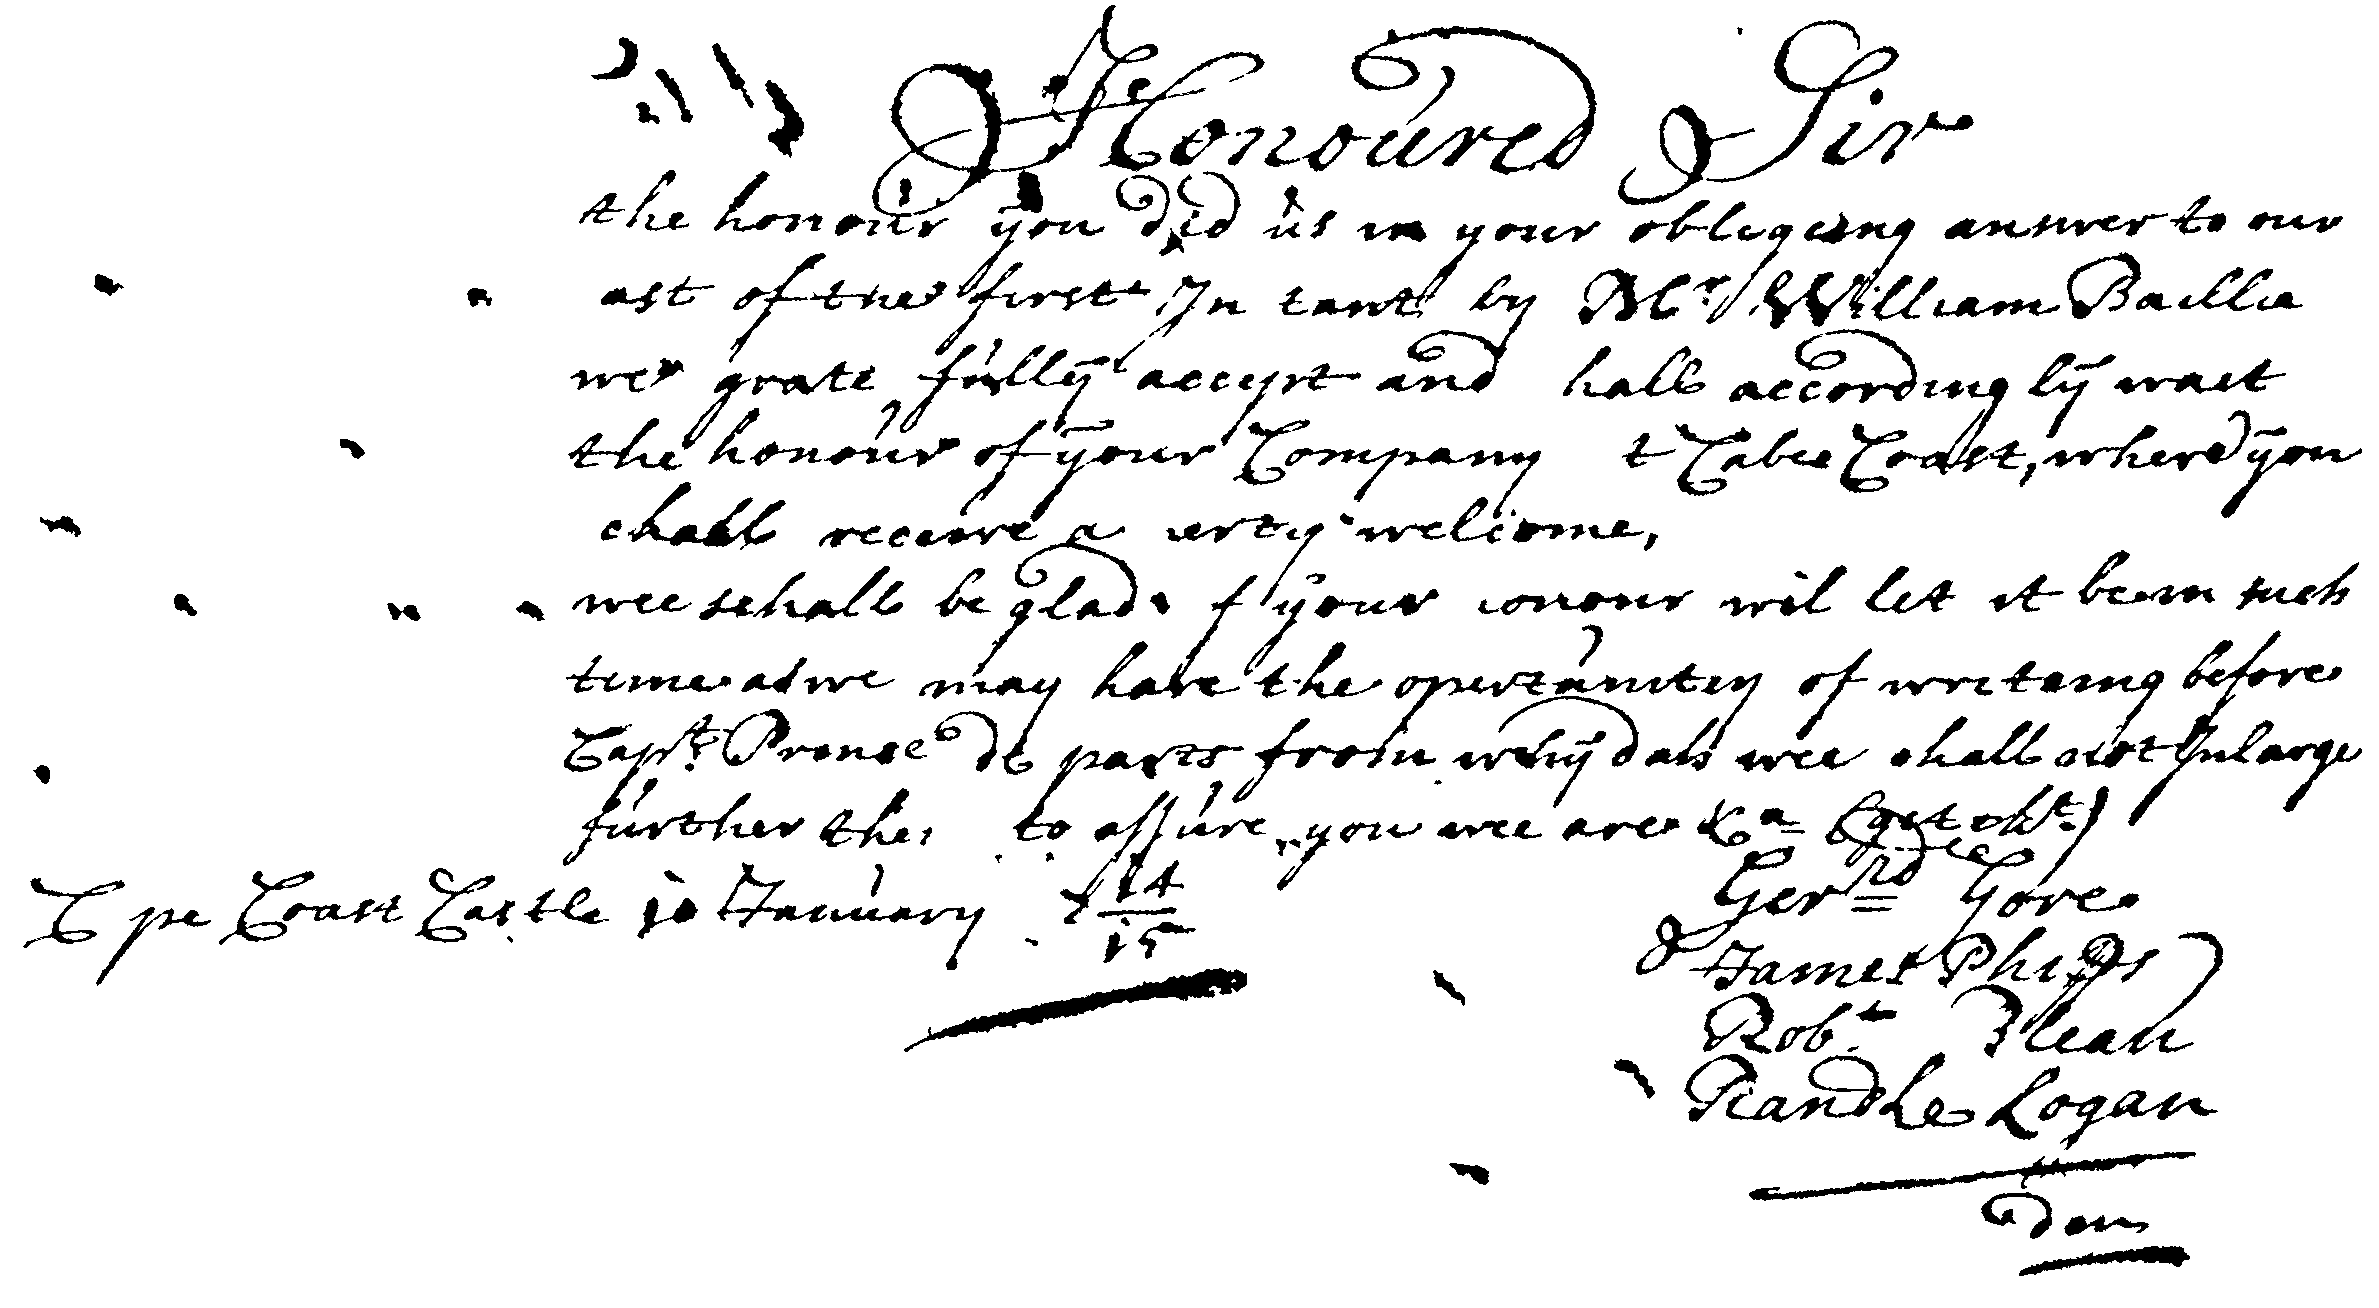 Honoured Sir
the honour you did us in your obligeing answer to our
ast of the first In tant by Mr William Baillie
wee grate fully accept and hall accordingly wait
the honour of your Company t Cabee Coast, where you
chall receive a verey welcome,
wee schall be glad f your onour wil let it bee in such
time as we may have the opertunitey of writeing before
Capt. Pronce de parts from whydah wee shall not Inlarge
further the to assure you wee are &a
C pe Coast Castle 10 January 14/15
Gerrd Gore
& James Phipps
Robt. Blean
Randle Logan